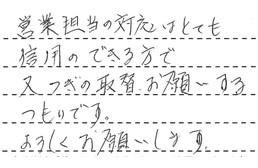 営業担当の対応はとても
信用のできる方で
又つぎの取替お願いする
つもりです。
よろしくお願いします。